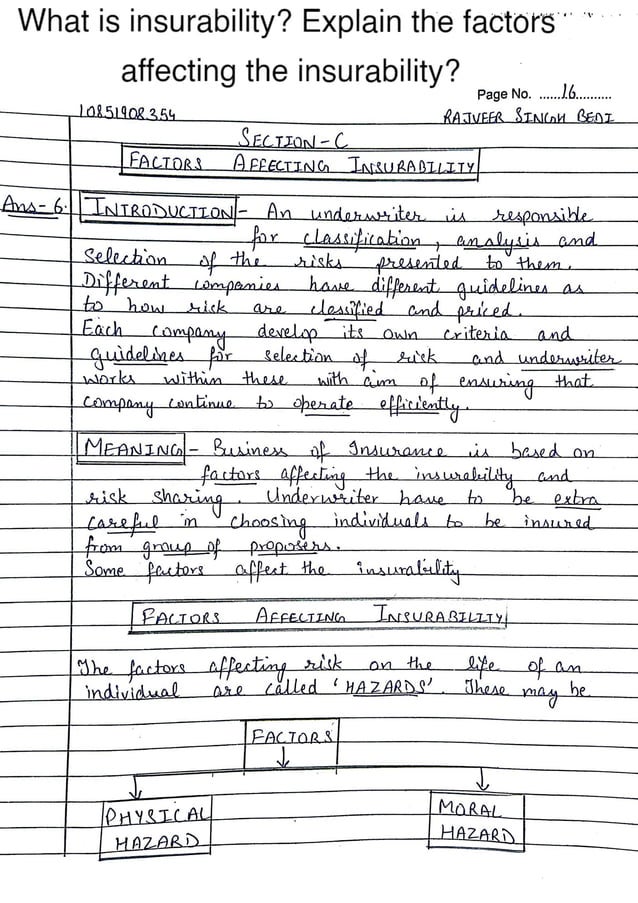 What is insurability? Explain the factors
affecting the insurability?
Page No. ......16..........
10851908354
RAJVEER SINGH BEDI
SECTION-C
FACTORS AFFECTING INSURABILITY
Ans-6. INTRODUCTION - An underwriter is responsible
for classification, analysis and
Selection of the risks presented to them.
Different companies have different guidelines as
to how risk are classified and priced.
Each company develop its own criteria and
guidelines for selection of risk and underwriter
works within these with aim of ensuring that
company continue to operate efficiently.
MEANING - Business of Insurance is based on
factors affecting the insurability and
risk sharing. Underwriter have to be extra
careful in choosing individuals to be insured
from group of proposers.
Some factors affect the insurability
FACTORS AFFECTING INSURABILITY
The factors affecting risk on the life of an
individual are called 'HAZARDS'. These may be
FACTORS
PHYSICAL MORAL
HAZARD HAZARD